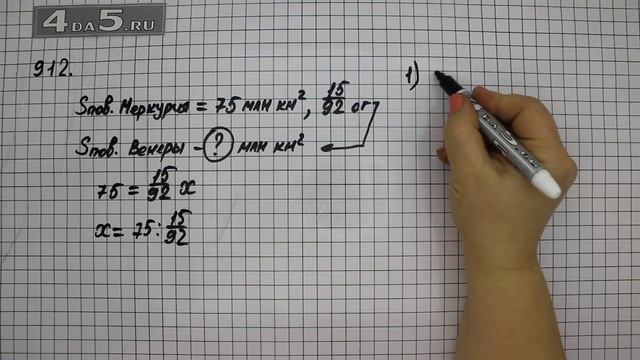 4DA5.RU
912.
Sпов. Меркурия = 75 млн км², 15/92 от
Sпов. Венеры - ? млн км²
75 = 15/92 x
x = 75 : 15/92
1)